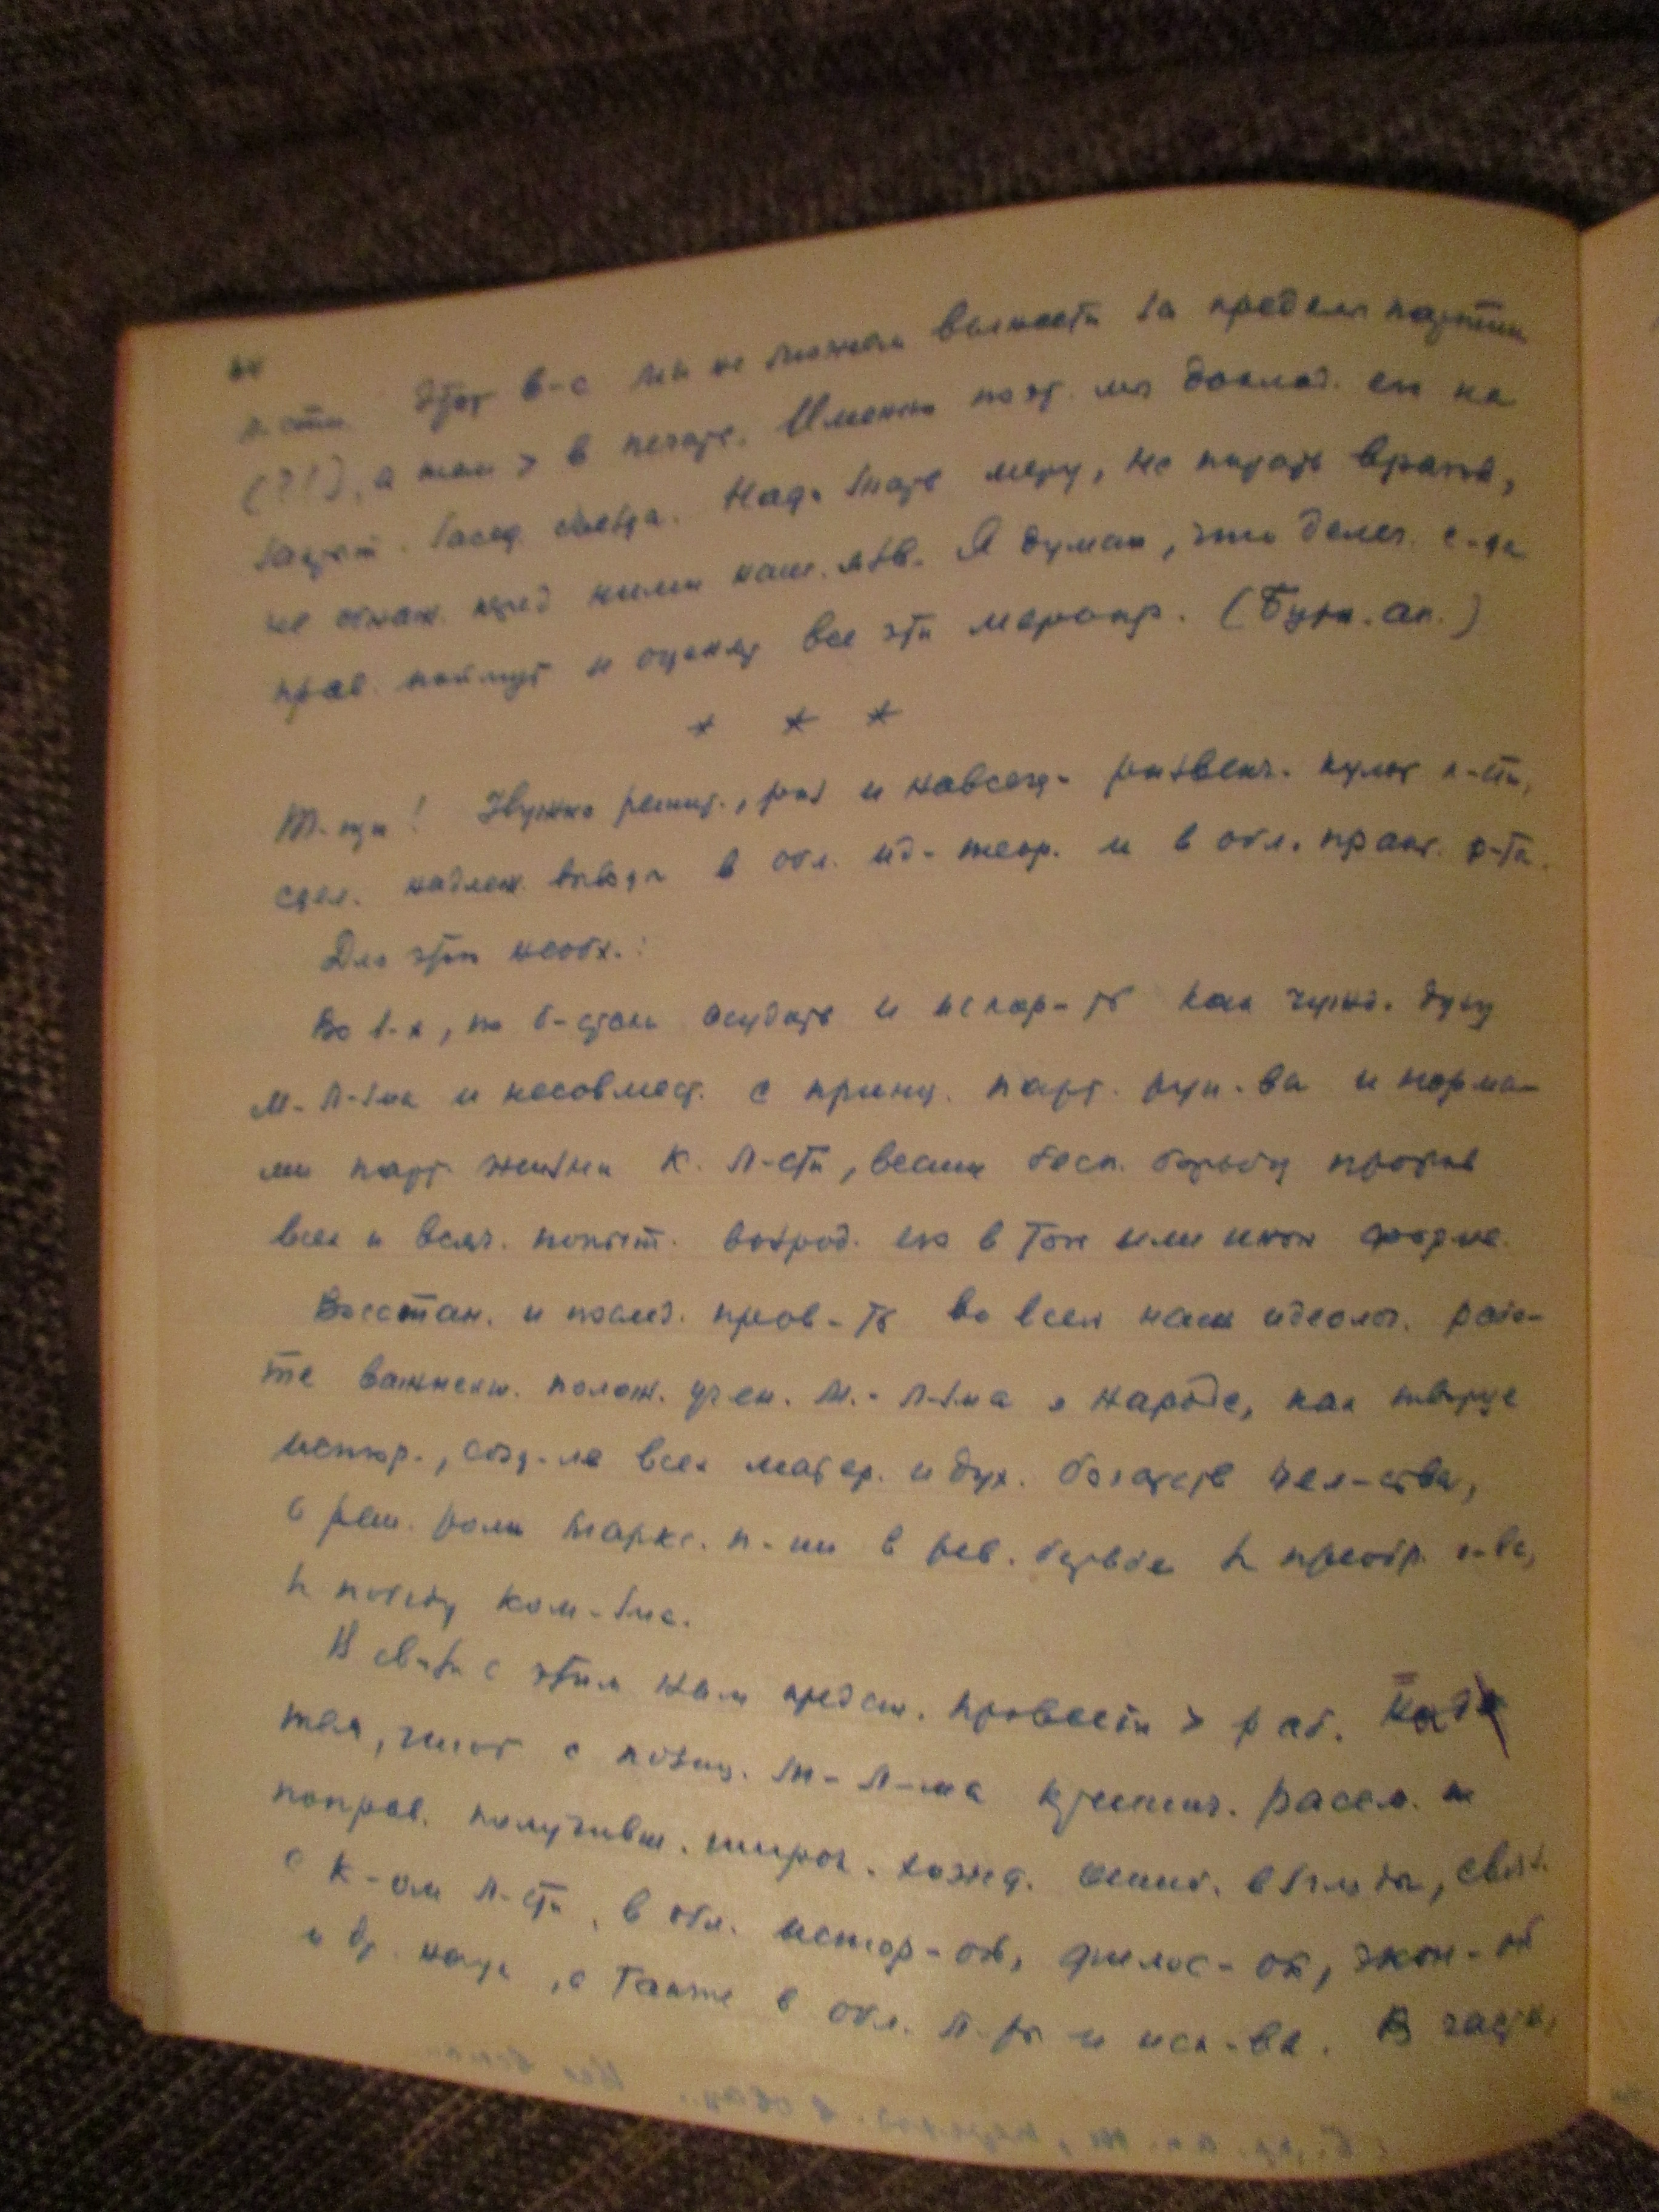 л-сти. Этот в-с мы не можем вынести за пределы партии
(?!), а тем > в печать. Именно поэт. мы доклад. его на
закрыт. засед. съезда. Надо знать меру, не питать врагов,
не обнаж. перед ними наш. язв. Я думаю, что делег. с-да
прав. поймут и оценят все эти меропр. (Бурн. ап.)
* * *
Т-щи! Нужно решит., раз и навсегда развенч. культ л-сти,
сдел. надлеж. выводы в обл. ид-теор. и в обл. практ. р-ты.
Для этого необх.:
Во 1-х, по б-стски осудить и искор-ть как чужд. духу
м-л-зма и несовмест. с принц. парт. рук-ва и норма-
ми парт. жизни к. л-сти, вести бесп. борьбу против
всех и всяч. попыт. возрод. его в той или иной форме.
Восстан. и послед. пров-ть во всей нашей идеолог. рабо-
те важнейш. полож. учен. м.-л-зма о народе, как творце
истор., созд-ле всех матер. и дух. богатств чел-ства,
о реш. роли маркс. п-ии в рев. борьбе h преобр. о-ва,
h победу ком-зма.
В связи с этим нам предст. провести > раб. над
тем, чтоб с позиц. м-л-ма критич. рассм. и
поправ. получивш. широк. хожд. ошиб. взгляды, связ.
с к-ом л-сти, в обл. истор-ой, филос-ой, экон-ой
и др. наук, а также в обл. л-ры и иск-ва. В частн.